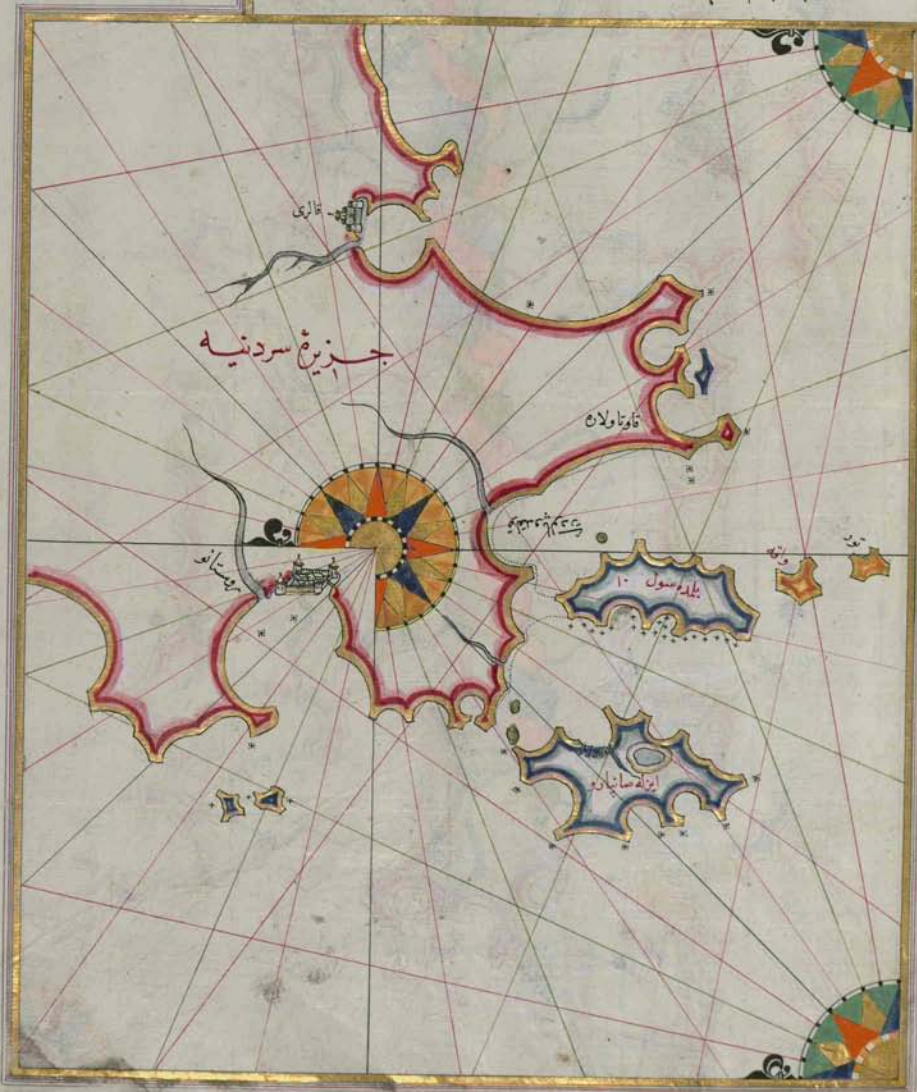 قالری
جزیرۀ سردنیه
قاوتاولاره
وستانو
یلده سول ١٠
واقه
تور
ایزله صانپارو